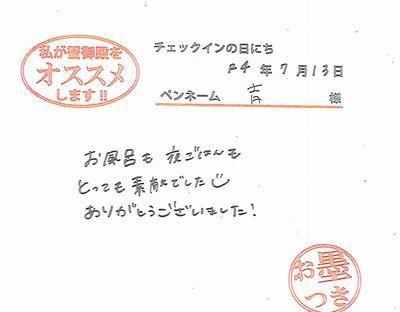 私が蟹御殿を
オススメ
します!!
チェックインの日にち
24年7月13日
ペンネーム 青 様
お風呂も夜ごはんも
とっても素敵でした
ありがとうございました!
お墨
つき